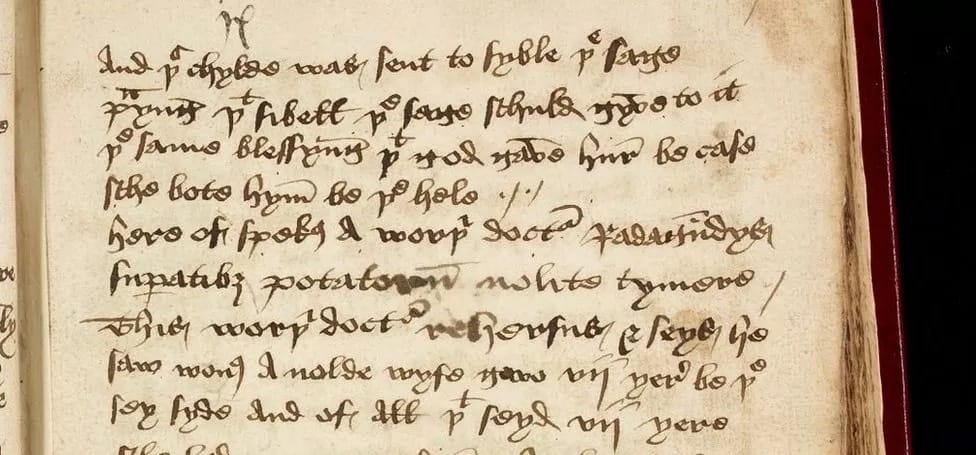 And þʳ chylde was sent to syble þᵉ sage
þᵗ sibell þᵉ sage schuld gyve to it
þᵉ same blessyng̅ þᵗ god gave hur̅ be case
sche bote hym̅ be þᵉ hele
here of spekꝭ A worþⁱ doctʳ Radagu̅dys
supatibꝫ potatorū nolite tymere
This worþⁱ doctʳ rehersus & seys he
saw wonꝭ A nolde wyfe gwo vij yer̅ be þᵉ
sey syde And of All þᵗ seyd vij yere